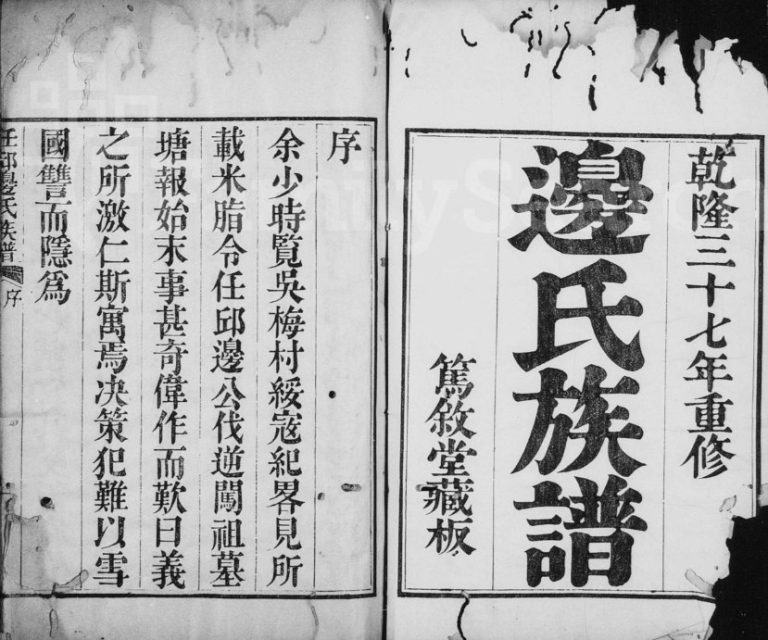 乾隆三十七年重修
邊氏族譜
篤敘堂藏板
序
余少時覧吳梅村綏宼紀畧見所
載米脂令任邱邊公伐逆闖祖墓
塘報始末事甚奇偉作而歎曰義
之所激仁斯寓焉决策犯難以雪
國讐而隱爲
任邱邊氏族譜 序